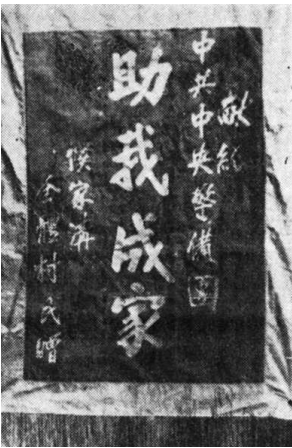 献给
中共中央警备团
助我成家
侯家沟
全体村民赠